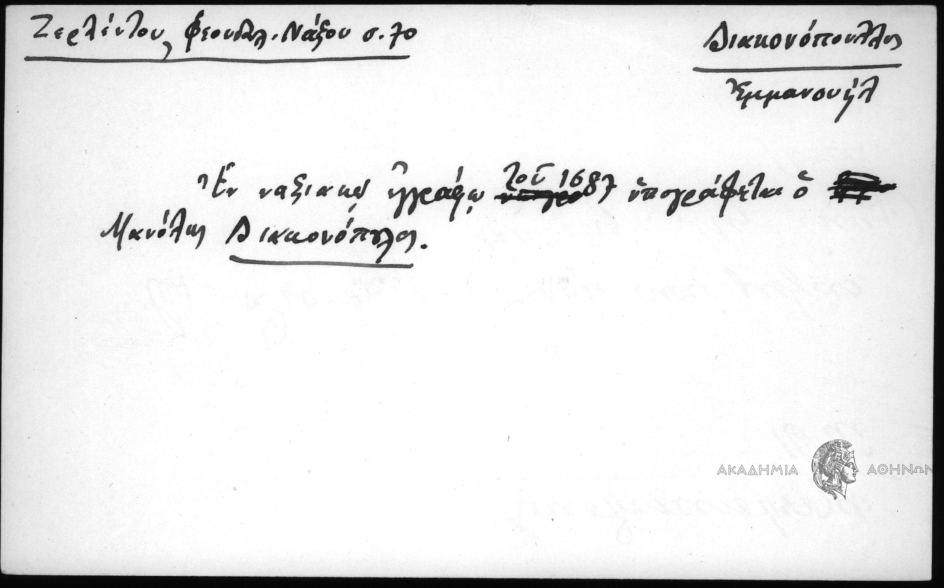 Ζερλέντου, Φεουδαλ. Νάξου σ. 70
Διακονόπουλος
Ἐμμανουήλ
Ἐν ναξιακῷ ἐγγράφῳ τοῦ 1687 ὑπογράφεται ὁ
Μανόλης Διακονόπουλος.
ΑΚΑΔΗΜΙΑ ΑΘΗΝΩΝ